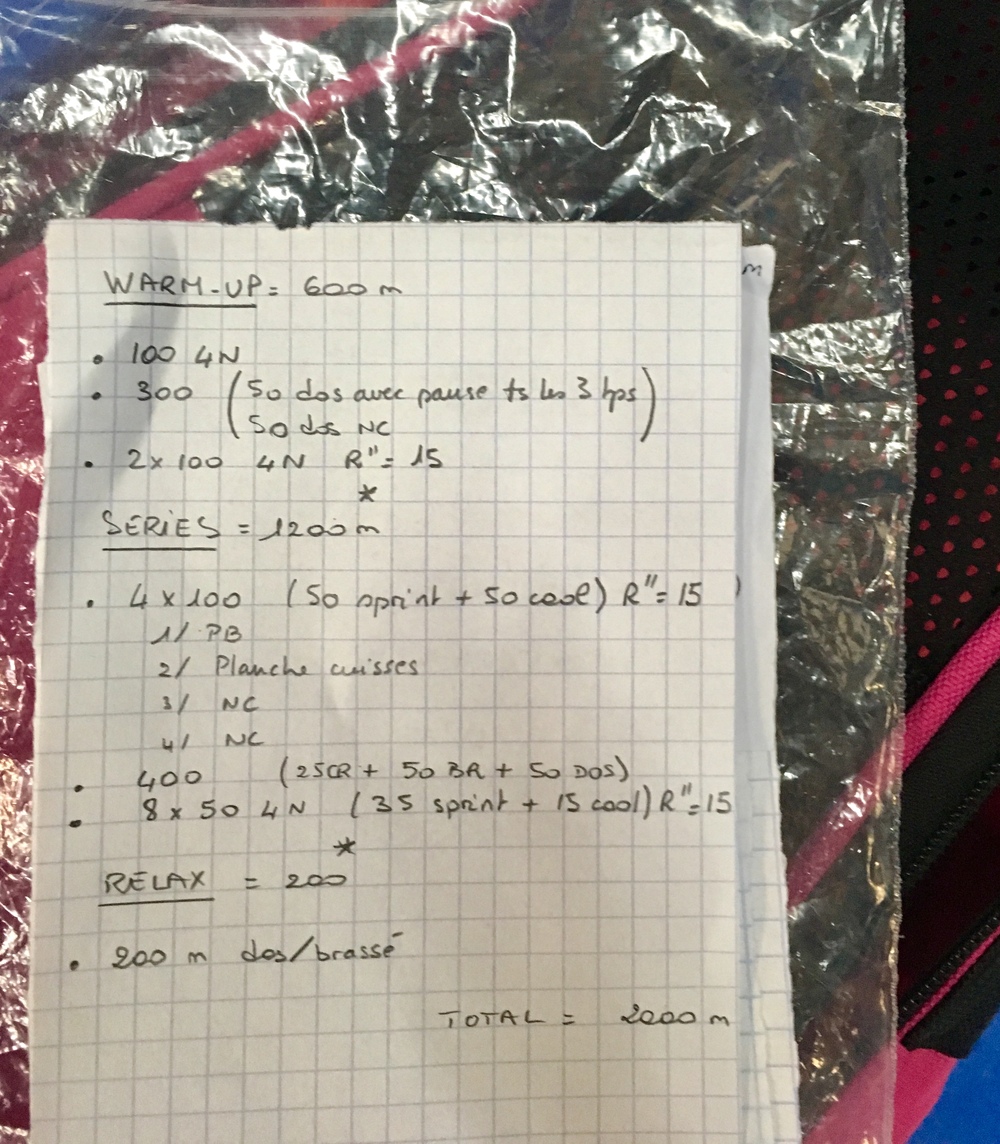 m
WARM-UP = 600 m
• 100 4N
• 300 (50 dos avec pause ts les 3 tps)
50 dos NC
• 2 x 100 4N R" = 15
*
SERIES = 1200 m
• 4 x 100 (50 sprint + 50 cool) R" = 15
1/ PB
2/ Planche cuisses
3/ NC
4/ NC
• 400 (25CR + 50 BR + 50 DOS)
• 8 x 50 4N (35 sprint + 15 cool) R" = 15
*
RELAX = 200
• 200 m dos/brasse
TOTAL = 2000 m